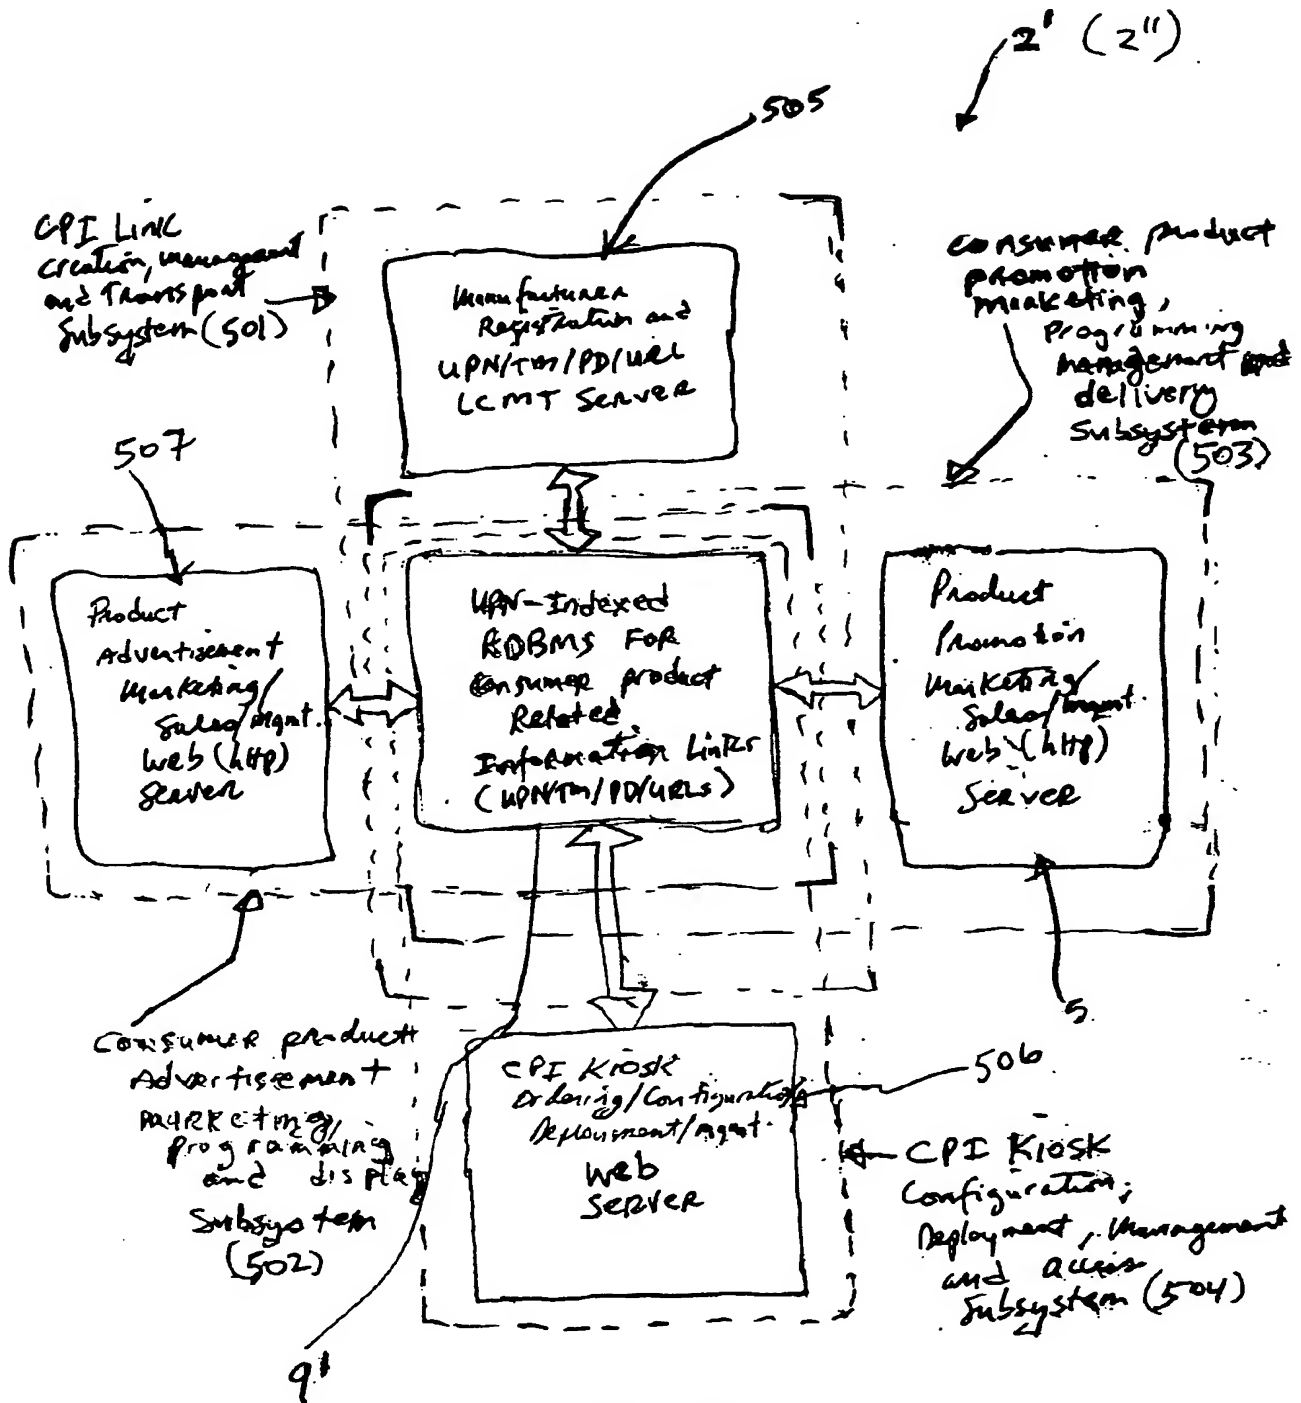 2' (2'')
505
CPI Link
Creation, Management
and Transport
Subsystem (501)
Manufacturer
Registration and
UPN/TM/PD/URL
LCMT SERVER
Consumer product
promotion
marketing,
Programming
management and
delivery
Subsystem
(503)
507
Product
Advertisement
Marketing/
Sales/mgmt.
Web (http)
Server
UPN-Indexed
RDBMS FOR
Consumer product
Related
Information Links
(UPN/TM/PD/URLs)
Product
Promotion
Marketing/
Sales/mgmt.
Web (http)
Server
5
Consumer product
Advertisement
marketing,
programming
and display
Subsystem
(502)
CPI Kiosk
Ordering/Configuration/
Deployment/mgmt.
Web
Server
506
CPI Kiosk
Configuration,
Deployment, Management
and access
Subsystem (504)
9'